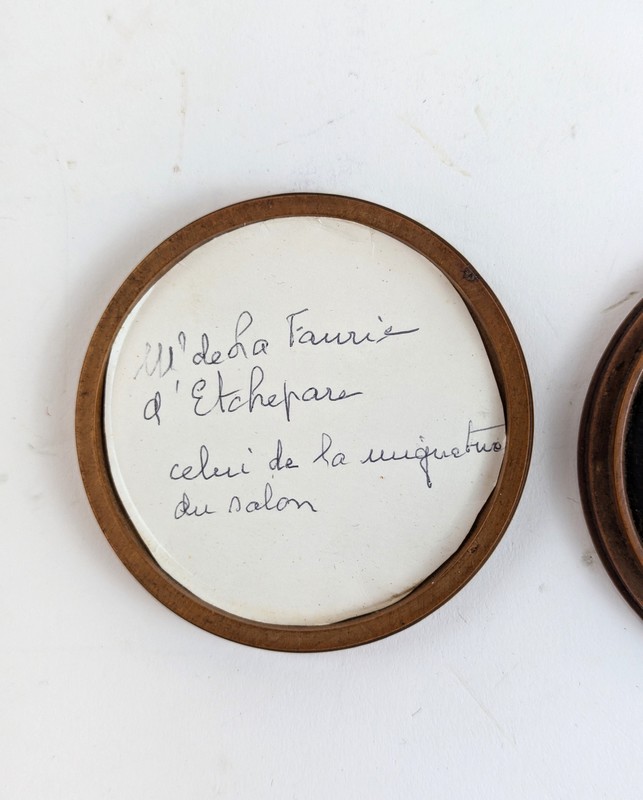 Mr de La Faurie
d'Etchepare
celui de la mignature
du salon